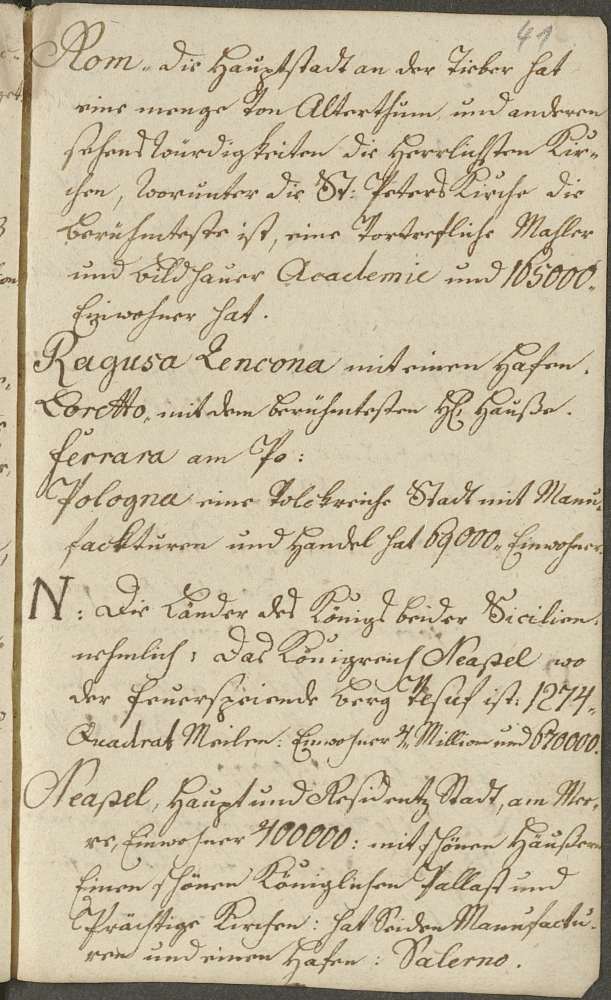 41
Rom. die Hauptstadt an der Tieber hat
eine menge von Alterthum und anderen
sehens würdigkeiten die Herrlichsten Kir=
chen, worunter die St: Peters Kirche die
berühmteste ist, eine vortrefliche Mahler
und bildhauer Academie und 165000.
Einwohner hat.
Ragusa Lencona mit einen Hafen.
Loretto, mit dem berühmtesten Hl: Hauße.
ferrara am Po:
Pologna eine volckreiche Stadt mit Manu=
fackturen und Handel hat 69000. Einwohner.
N: die Länder des Königs beider Sicilien.
nehmlich: das Königreich Neapel wo
der feuerspeiende berg Vesuf ist: 1274.
Quadrat Meilen: Einwohner 4 Million und 670000.
Neapel, Haupt und Residentz Stadt, am Mee=
re, Einwohner 400000: mit schönen Häußern
Einen schönen Königlichen Pallast und
Prächtige Kirchen: hat Seiden Manufactu=
ren und einen Hafen: Salerno.